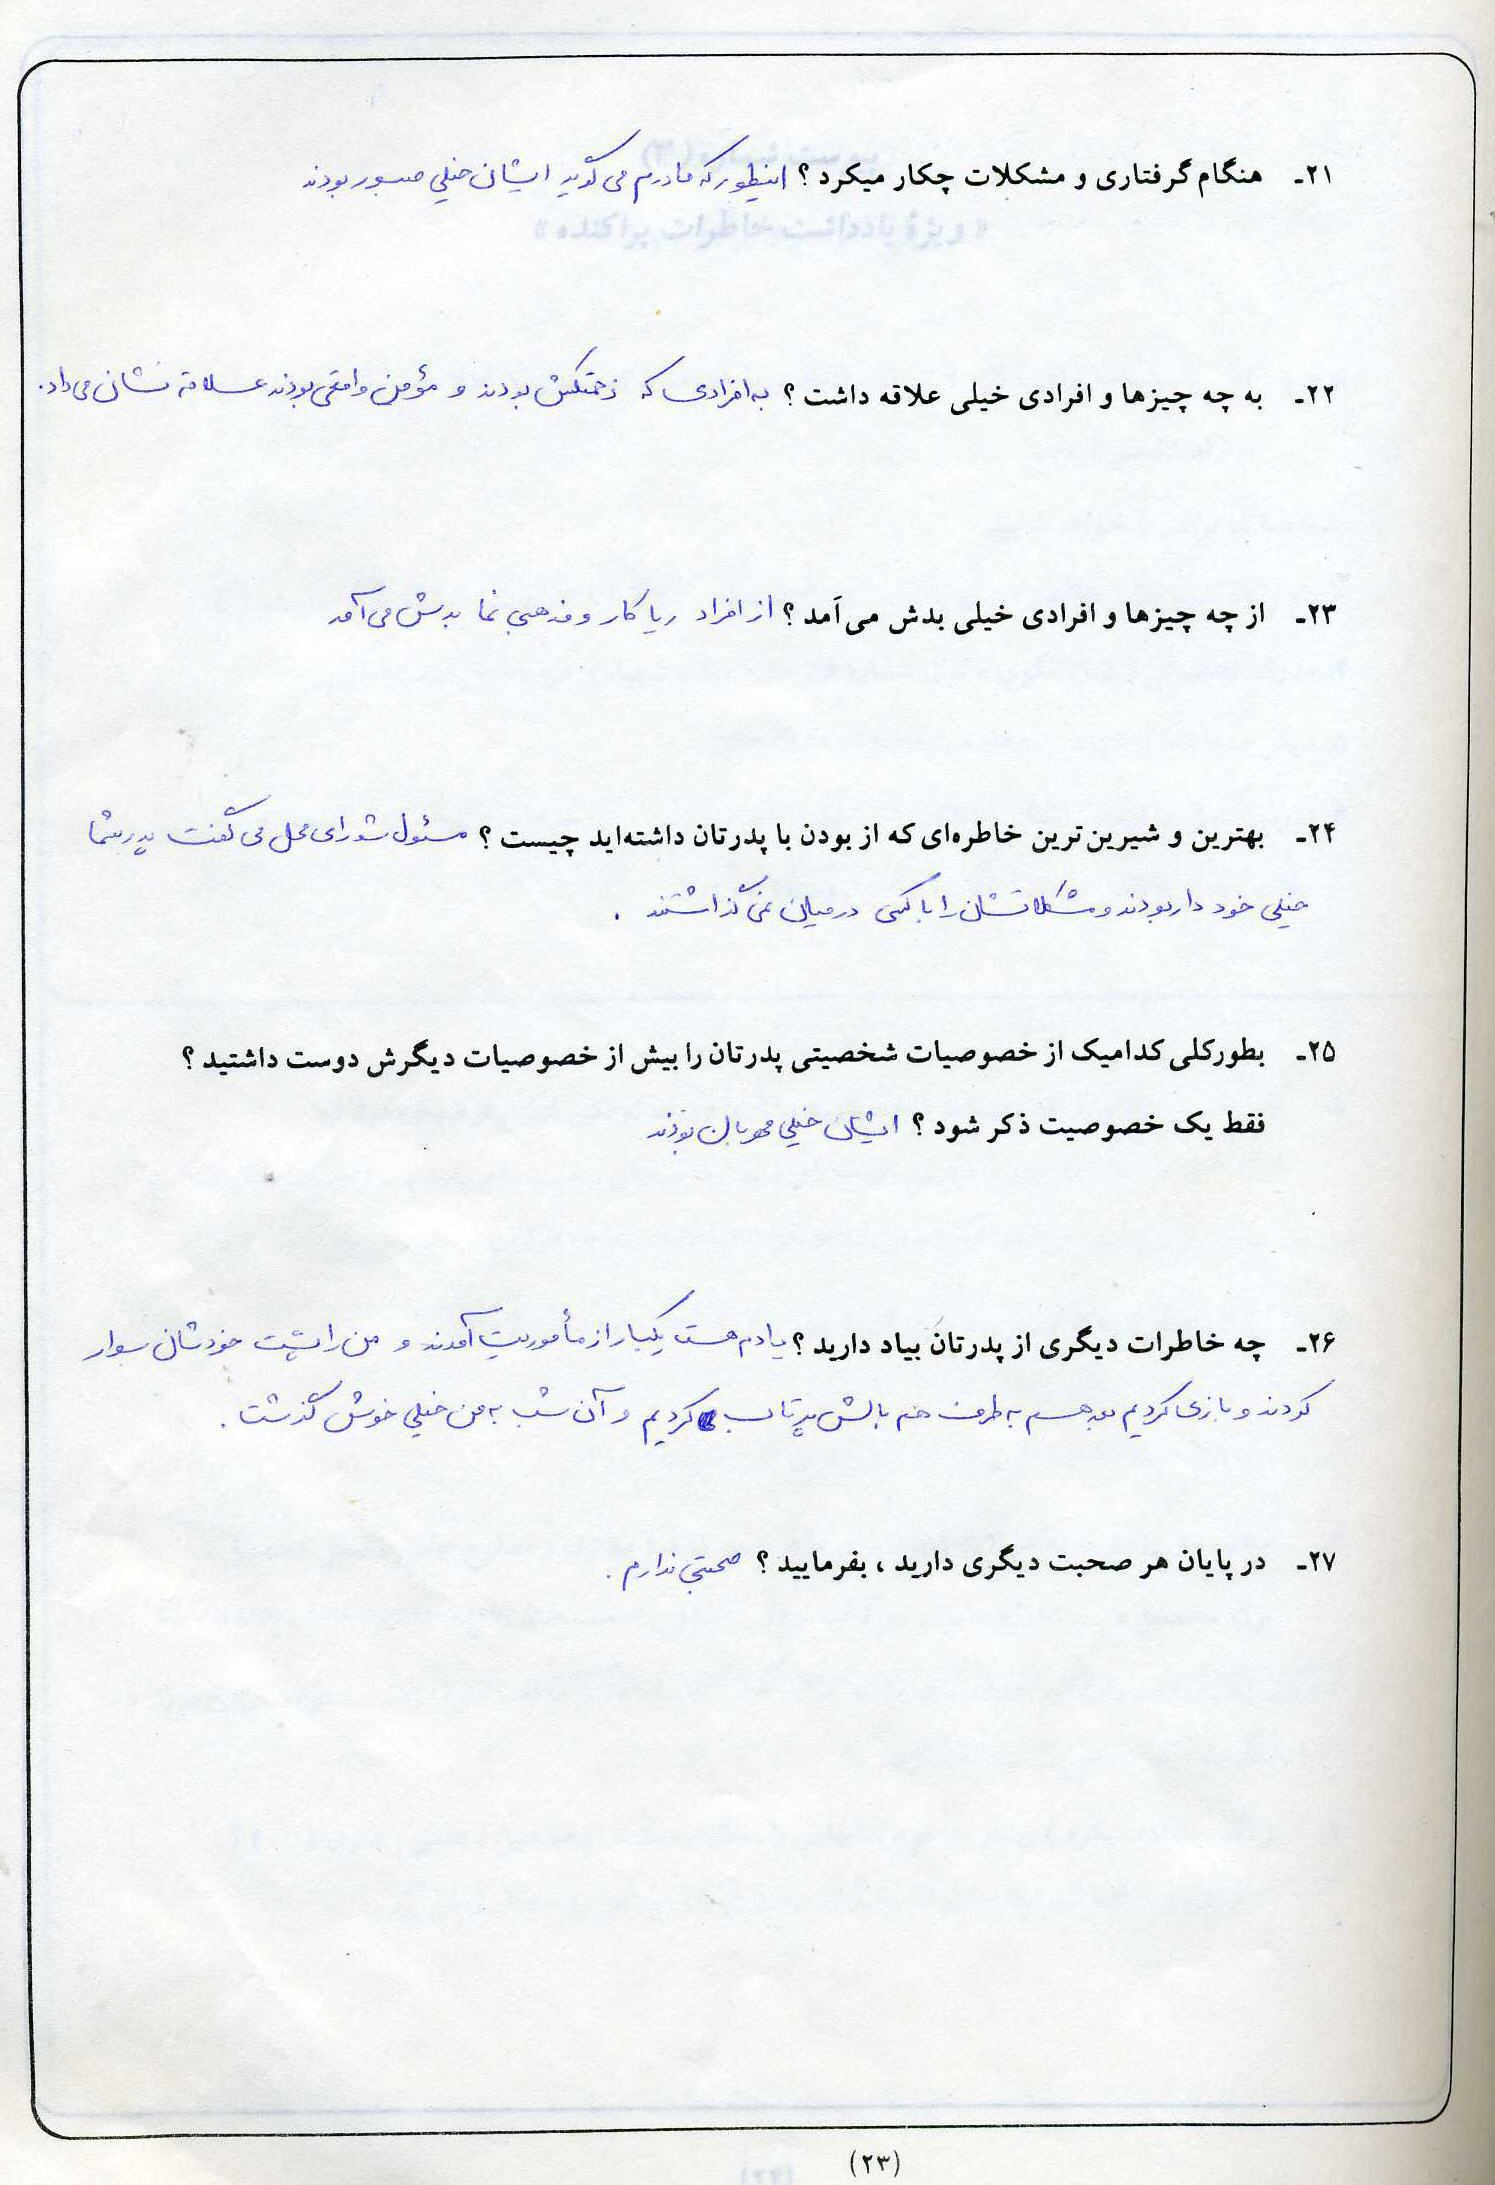 ۲۱ـ هنگام گرفتاری و مشکلات چکار میکرد ؟ اینطور که مادرم می گوید ایشان خیلی صبور بودند
۲۲ـ به چه چیزها و افرادی خیلی علاقه داشت ؟ به افرادی که زحمتکش بودند و مؤمن واقعی بودند علاقه نشان می داد.
۲۳ـ از چه چیزها و افرادی خیلی بدش می آمد ؟ از افراد ریا کار و مذهبی نما بدش می آمد
۲۴ـ بهترین و شیرین ترین خاطره‌ای که از بودن با پدرتان داشته‌اید چیست ؟ مسئول شورای محل می گفت پدر شما
خیلی خود دار بودند و مشکلاتشان را با کسی در میان نمی گذاشتند .
۲۵ـ بطورکلی کدامیک از خصوصیات شخصیتی پدرتان را بیش از خصوصیات دیگرش دوست داشتید ؟
فقط یک خصوصیت ذکر شود ؟ ایشان خیلی مهربان بودند
۲۶ـ چه خاطرات دیگری از پدرتان بیاد دارید ؟ یادم هست یکبار از مأموریت آمدند و من را پشت خودشان سوار
کردند و بازی کردیم بعد هم به طرف هم بالش پرتاب کردیم و آن شب به من خیلی خوش گذشت .
۲۷ـ در پایان هر صحبت دیگری دارید ، بفرمایید ؟ صحبتی ندارم .
(۲۳)